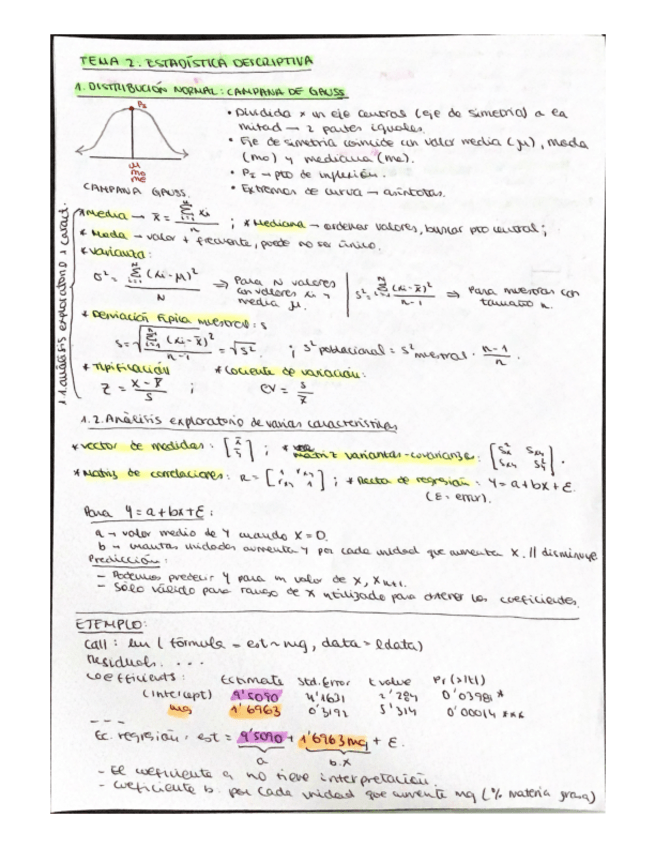 TEMA 2. ESTADÍSTICA DESCRIPTIVA
1. DISTRIBUCIÓN NORMAL: CAMPANA DE GAUSS
PI
μ
mo
me
CAMPANA GAUSS.
• Dividida x un eje central (eje de simetría) a la
mitad → 2 partes iguales.
• Eje de simetría coincide con valor media (μ), moda
(mo) y mediana (me).
• PI → pto de inflexión.
• Extremos de curva → asíntotas.
1.1. análisis exploratorio 1 caract.
* Media → x̄ = Σ xi / n ; * Mediana → ordenar valores, buscar pto central;
* Moda → valor + frecuente, puede no ser único.
* Varianza:
σ² = Σ (xi - μ)² / N ⇒ Para N valores con valores xi y media μ. | s² = Σ (xi - x̄)² / n-1 ⇒ Para muestras con tamaño n.
* Desviación típica muestral: s
s = √(Σ (xi - x̄)² / n-1) = √s² ; s² poblacional = s² muestral · n-1 / n
* Tipificación * Cociente de variación:
Z = x - x̄ / s ; CV = s / x̄
1.2. Análisis exploratorio de varias características
* Vector de medidas: [x̄ ȳ] ; * Matriz varianzas-covarianzas: [s²x sxy sxy s²y].
* Matriz de correlaciones: R = [1 rxy rxy 1] ; * Recta de regresión: Y = a + bx + ε.
(ε = error).
Para Y = a + bx + ε:
a → valor medio de Y cuando X = 0.
b → cuantas unidades aumenta Y por cada unidad que aumenta X. // disminuye
Predicción:
- Podemos predecir Y para un valor de x, xn+1.
- Sólo válido para rango de X utilizado para obtener los coeficientes.
EJEMPLO:
Call: lm ( fórmula = est ~ mg, data = ldata)
Residuals. . . .
Coefficients: Estimate Std. Error t value Pr (>|t|)
(Intercept) 9'5090 4'1631 2'284 0'03981 *
mg 1'6963 0'3192 5'314 0'00014 ***
- - -
Ec. regresión: est = 9'5090 + 1'6963 mg + ε.
a b·x
- El coeficiente a no tiene interpretación.
- Coeficiente b. por cada unidad que aumente mg (% materia grasa)